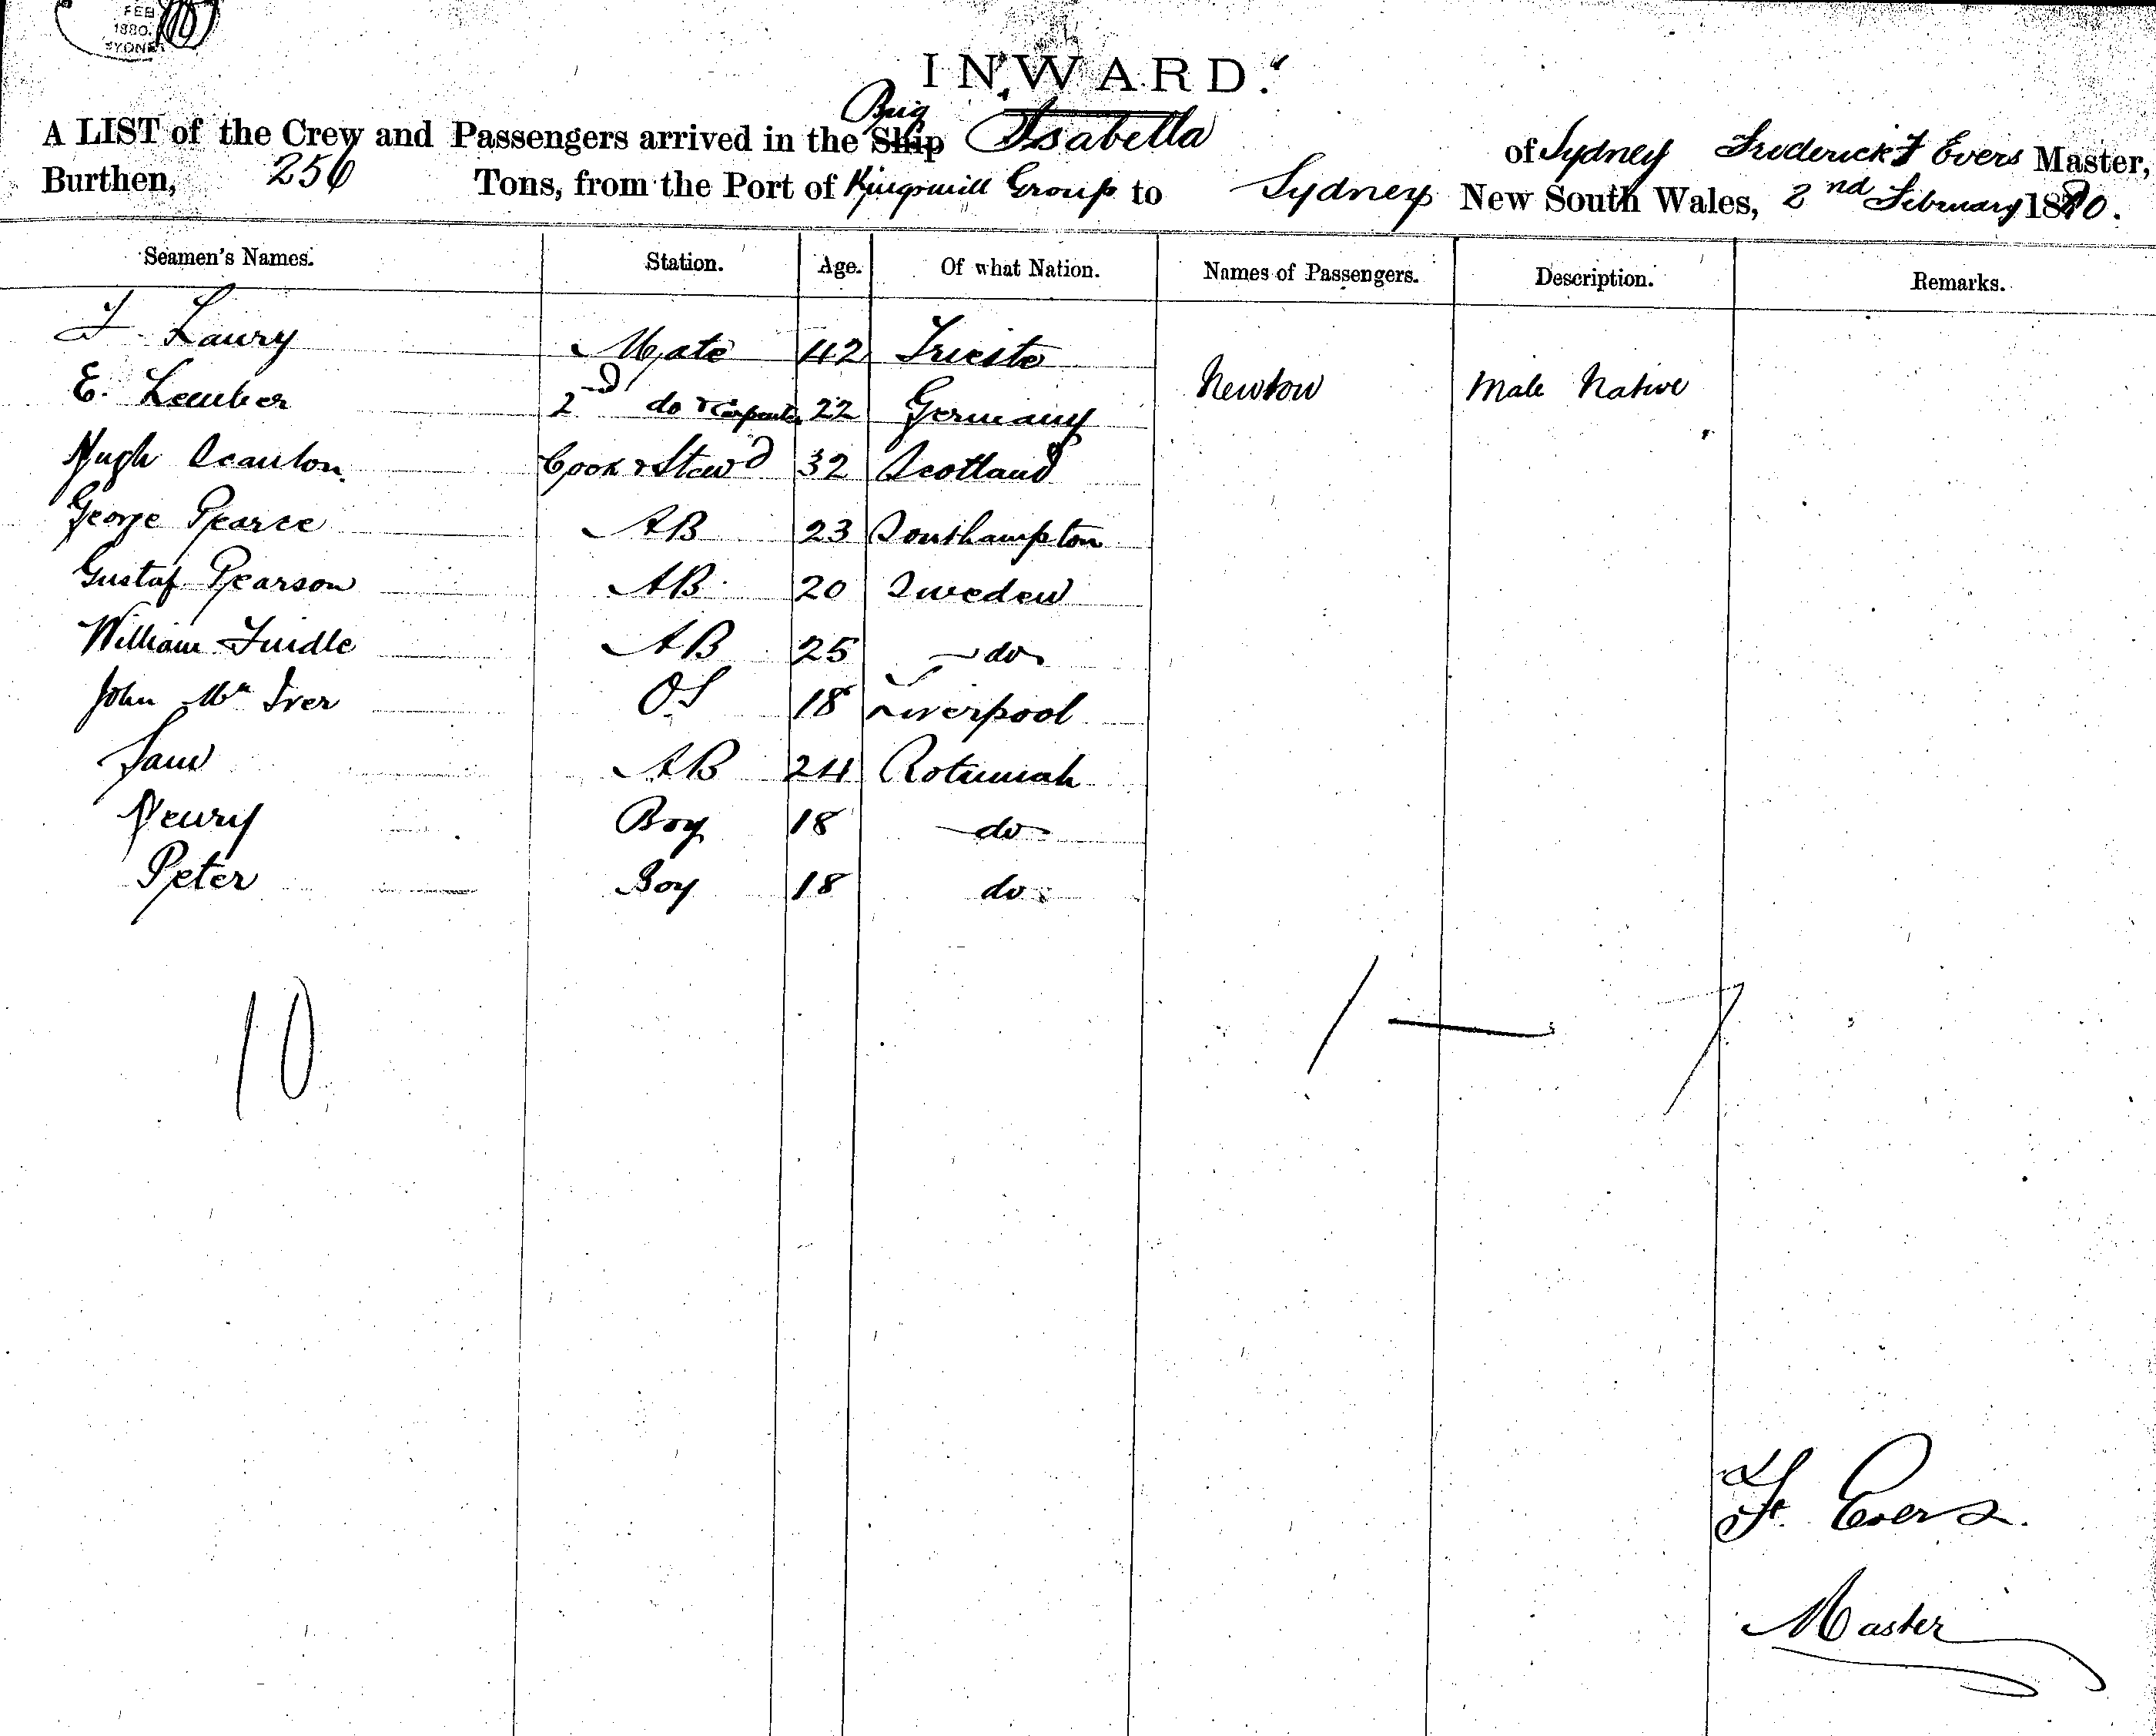 FEB
1880.
SYDNEY
INWARD.
A LIST of the Crew and Passengers arrived in the Ship Brig Isabella of Sydney Frederick F Evers Master,
Burthen, 256 Tons, from the Port of Kingsmill Group to Sydney New South Wales, 2nd February 1880.
Seamen's Names. Station. Age. Of what Nation. Names of Passengers. Description. Remarks.
Laury Mate 42 Trieste
Newton Male Native
E. 2nd do & Carpenter 22 Germany
Hugh Scanlon Cook & Stewd 32 Scotland
George Pearce AB 23 Southampton
Gustaf Pearson AB 20 Sweden
William AB 25 do
John Mc Iver OS 18 Liverpool
Sam AB 24 Rotumah
Henry Boy 18 do
Peter Boy 18 do
10 1 — 1
F. Evers.
Master